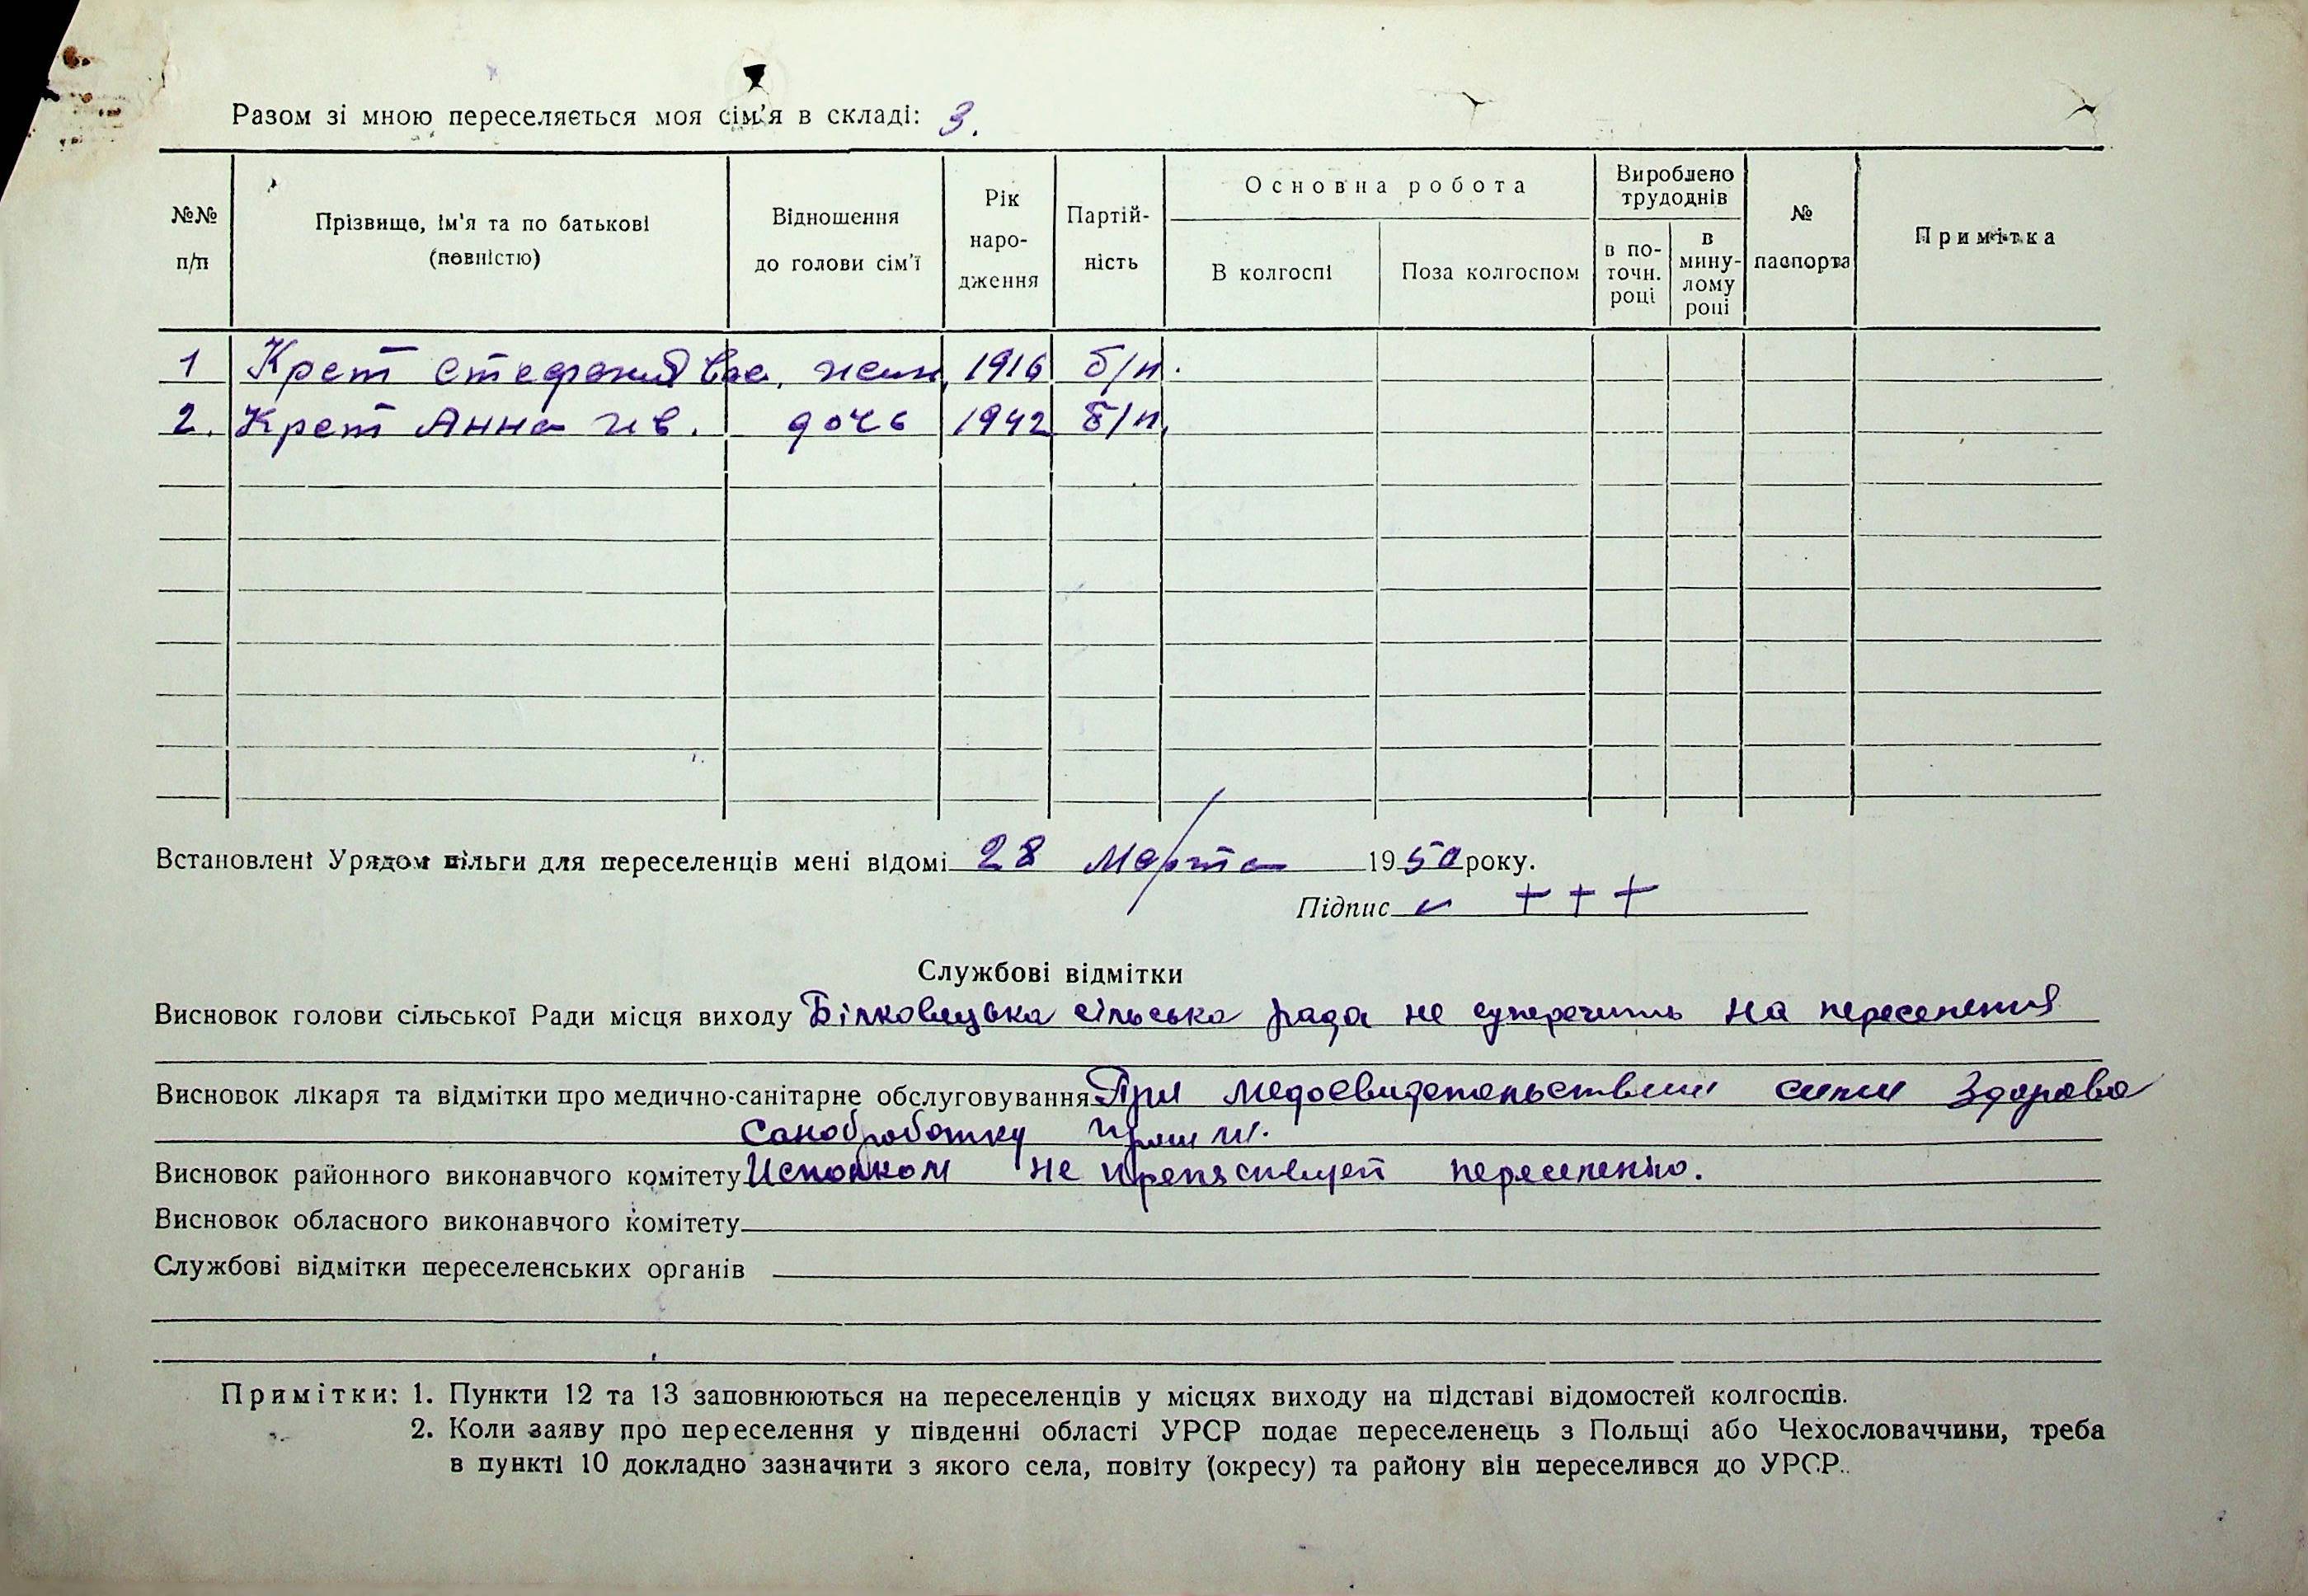 Разом зі мною переселяється моя сім'я в складі: 3.
№№ п/п
Прізвище, ім'я та по батькові (повністю)
Відношення до голови сім'ї
Рік наро-дження
Партій-ність
Основна робота
В колгоспі
Поза колгоспом
Вироблено трудоднів
в по-точн. році
в мину-лому році
№ паспорта
Примітка
1 Крет Стефания Вас. жена 1916 б/п.
2. Крет Анна Ив. дочь 1942 б/п.
Встановлені Урядом пільги для переселенців мені відомі 28 Марта 1950 року.
Підпис + + +
Службові відмітки
Висновок голови сільської Ради місця виходу Білковецька сільська рада не суперечить на переселения
Висновок лікаря та відмітки про медично-санітарне обслуговування При медосвидетельствии семья здорова
Санобработку прошли.
Висновок районного виконавчого комітету Исполком не препяствует переселению.
Висновок обласного виконавчого комітету
Службові відмітки переселенських органів
Примітки: 1. Пункти 12 та 13 заповнюються на переселенців у місцях виходу на підставі відомостей колгоспів.
2. Коли заяву про переселення у південні області УРСР подає переселенець з Польщі або Чехословаччини, треба
в пункті 10 докладно зазначити з якого села, повіту (окресу) та району він переселився до УРСР.